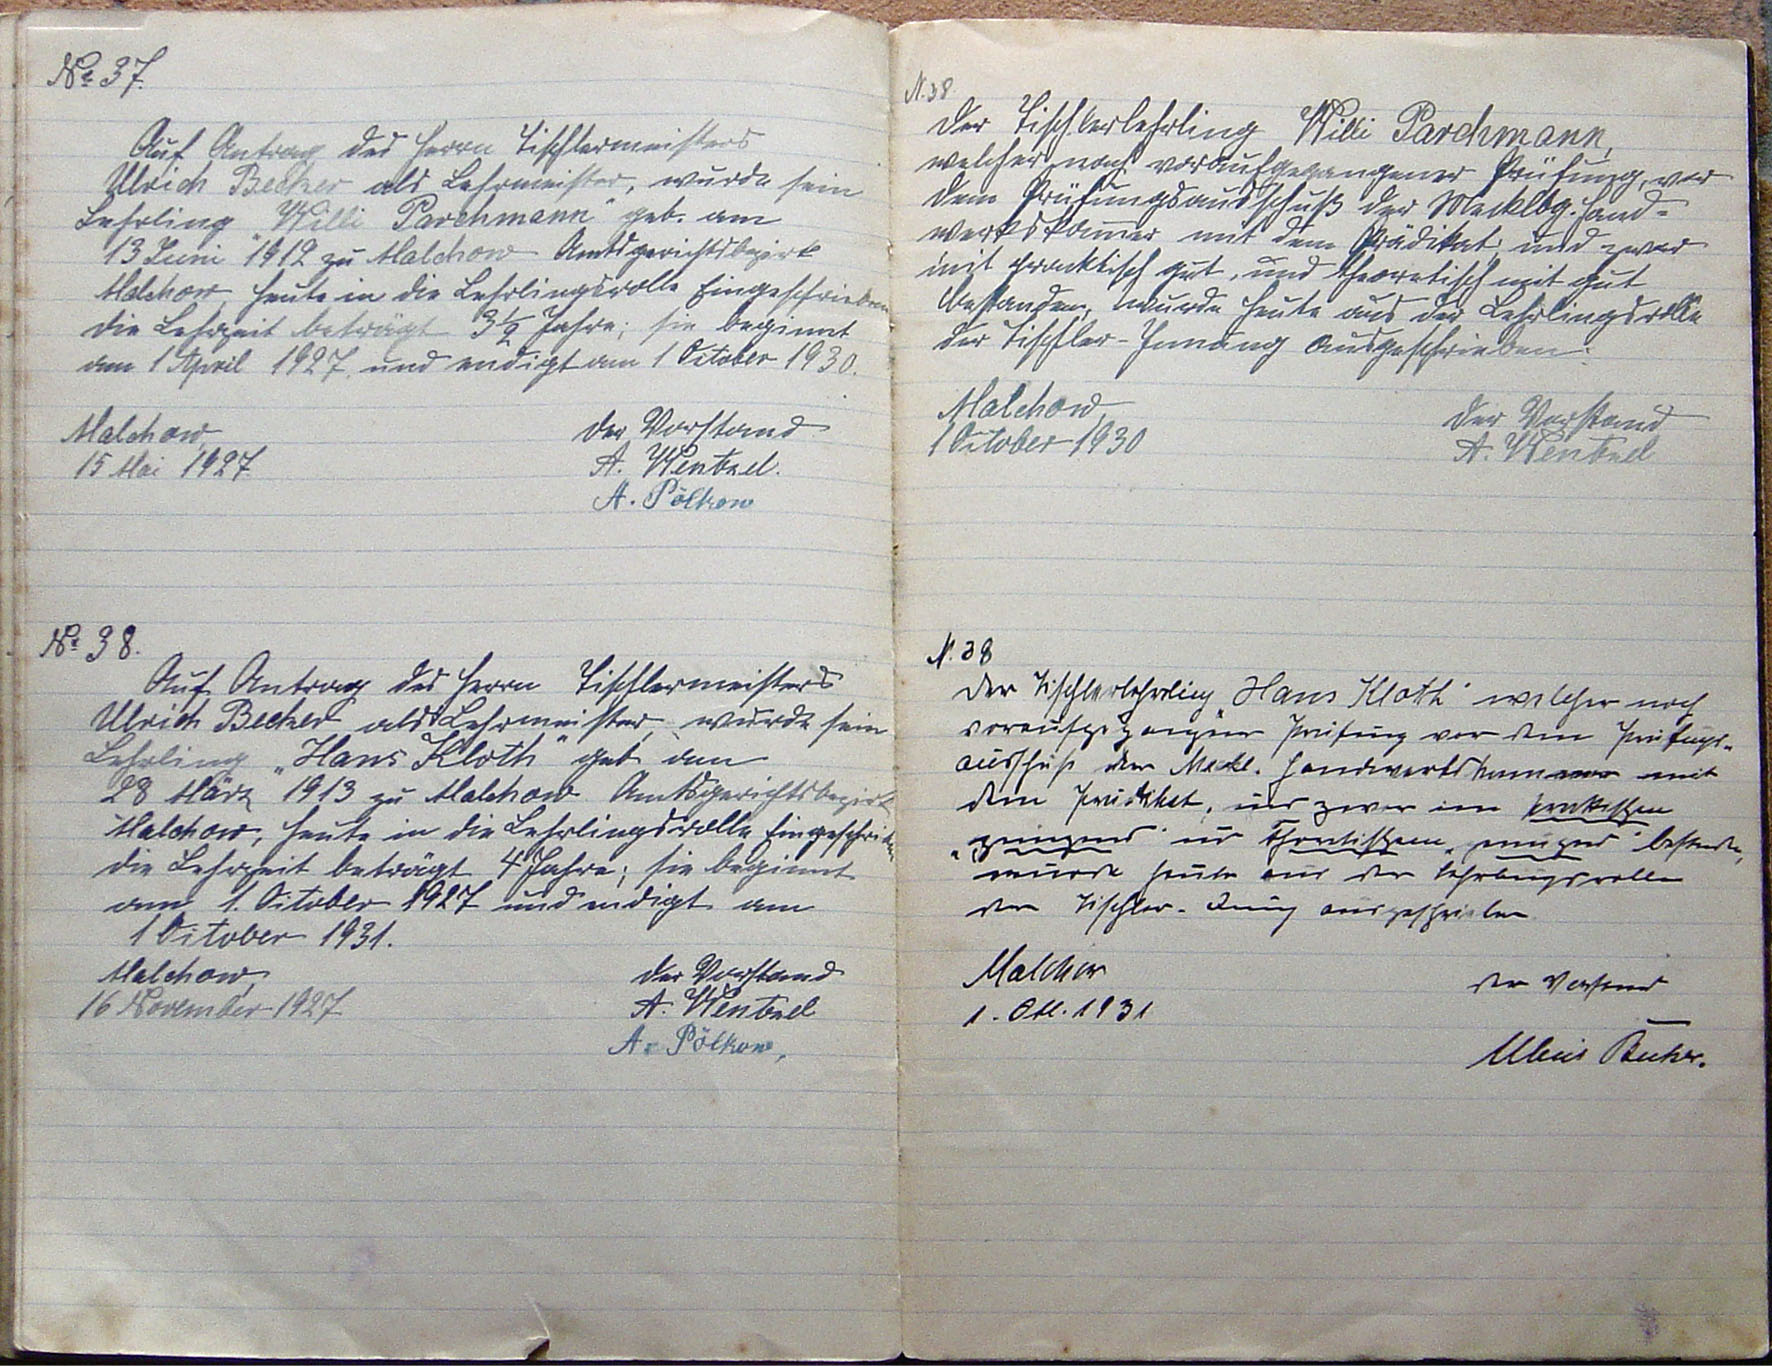 No 37.
Auf Antrag des Herrn Tischlermeisters
Ulrich Becker als Lehrmeister, wurde sein
Lehrling "Willi Parchmann" geb. am
13 Juni 1912 zu Malchow Amtsgerichtsbezirk
Malchow, heute in die Lehrlingsrolle Eingeschrieben
die Lehrzeit beträgt 3½ Jahre; sie beginnt
am 1 April 1927. und endigt am 1 October 1930.
Malchow,
15 Mai 1927
der Vorstand
A. Wentzel.
A. Pölkow
No 38.
Auf Antrag des Herrn Tischlermeisters
Ulrich Becker als Lehrmeister, wurde sein
Lehrling "Hans Kloth" geb am
28 März 1913 zu Malchow Amtsgerichtsbezirk
Malchow, heute in die Lehrlingsrolle Eingeschrieben
die Lehrzeit beträgt 4 Jahre; sie beginnt
am 1. October 1927 und endigt am
1 October 1931.
Malchow,
16 November 1927
der Vorstand
A. Wentzel
A. Pölkow,
N. 38
Der Tischlerlehrling Willi Parchmann,
welcher nach voraufgegangener Prüfung, vor
dem Prüfungsausschuß der Mecklbg. Hand-
werkskammer mit dem Prädikat, und zwar
mit pracktisch gut, und theoretisch mit gut
bestanden, wurde heute aus der Lehrlingsrolle
der Tischler-Innung ausgeschrieben.
Malchow,
1 October 1930
der Vorstand
A. Wentzel
N. 38
Der Tischlerlehrling "Hans Kloth" welcher nach
voraufgegangener Prüfung vor dem Prüfungs-
ausschuß der Meckl. Handwerkskammer mit
dem Prädikat, und zwar im praktischen
"genügend" und Theoretischen "genügend" bestanden,
wurde heute aus der Lehrlingsrolle
der Tischler-Innung ausgeschrieben
Malchow
1. Okt. 1931
der Vorstand
Ulrich Becker.